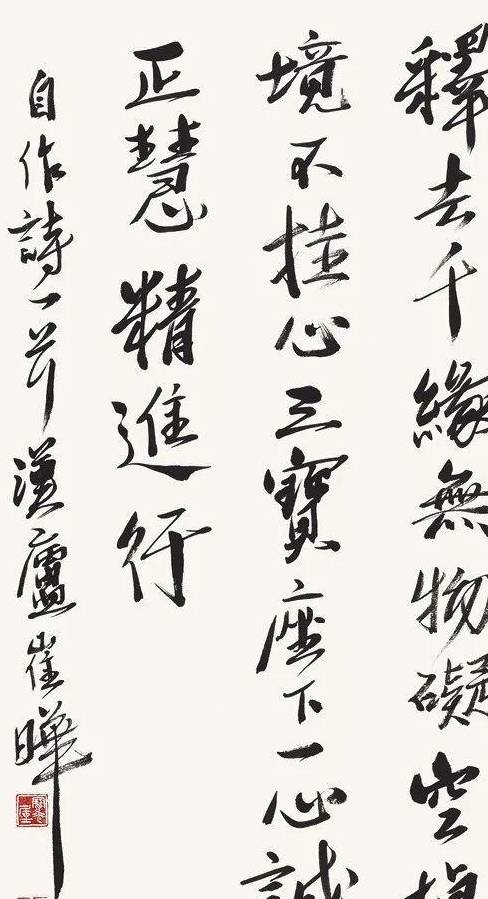 釋去千緣無物礙空
境不挂心三寶座下一心誠
正慧精進行
自作詩一首漢廬崔曄